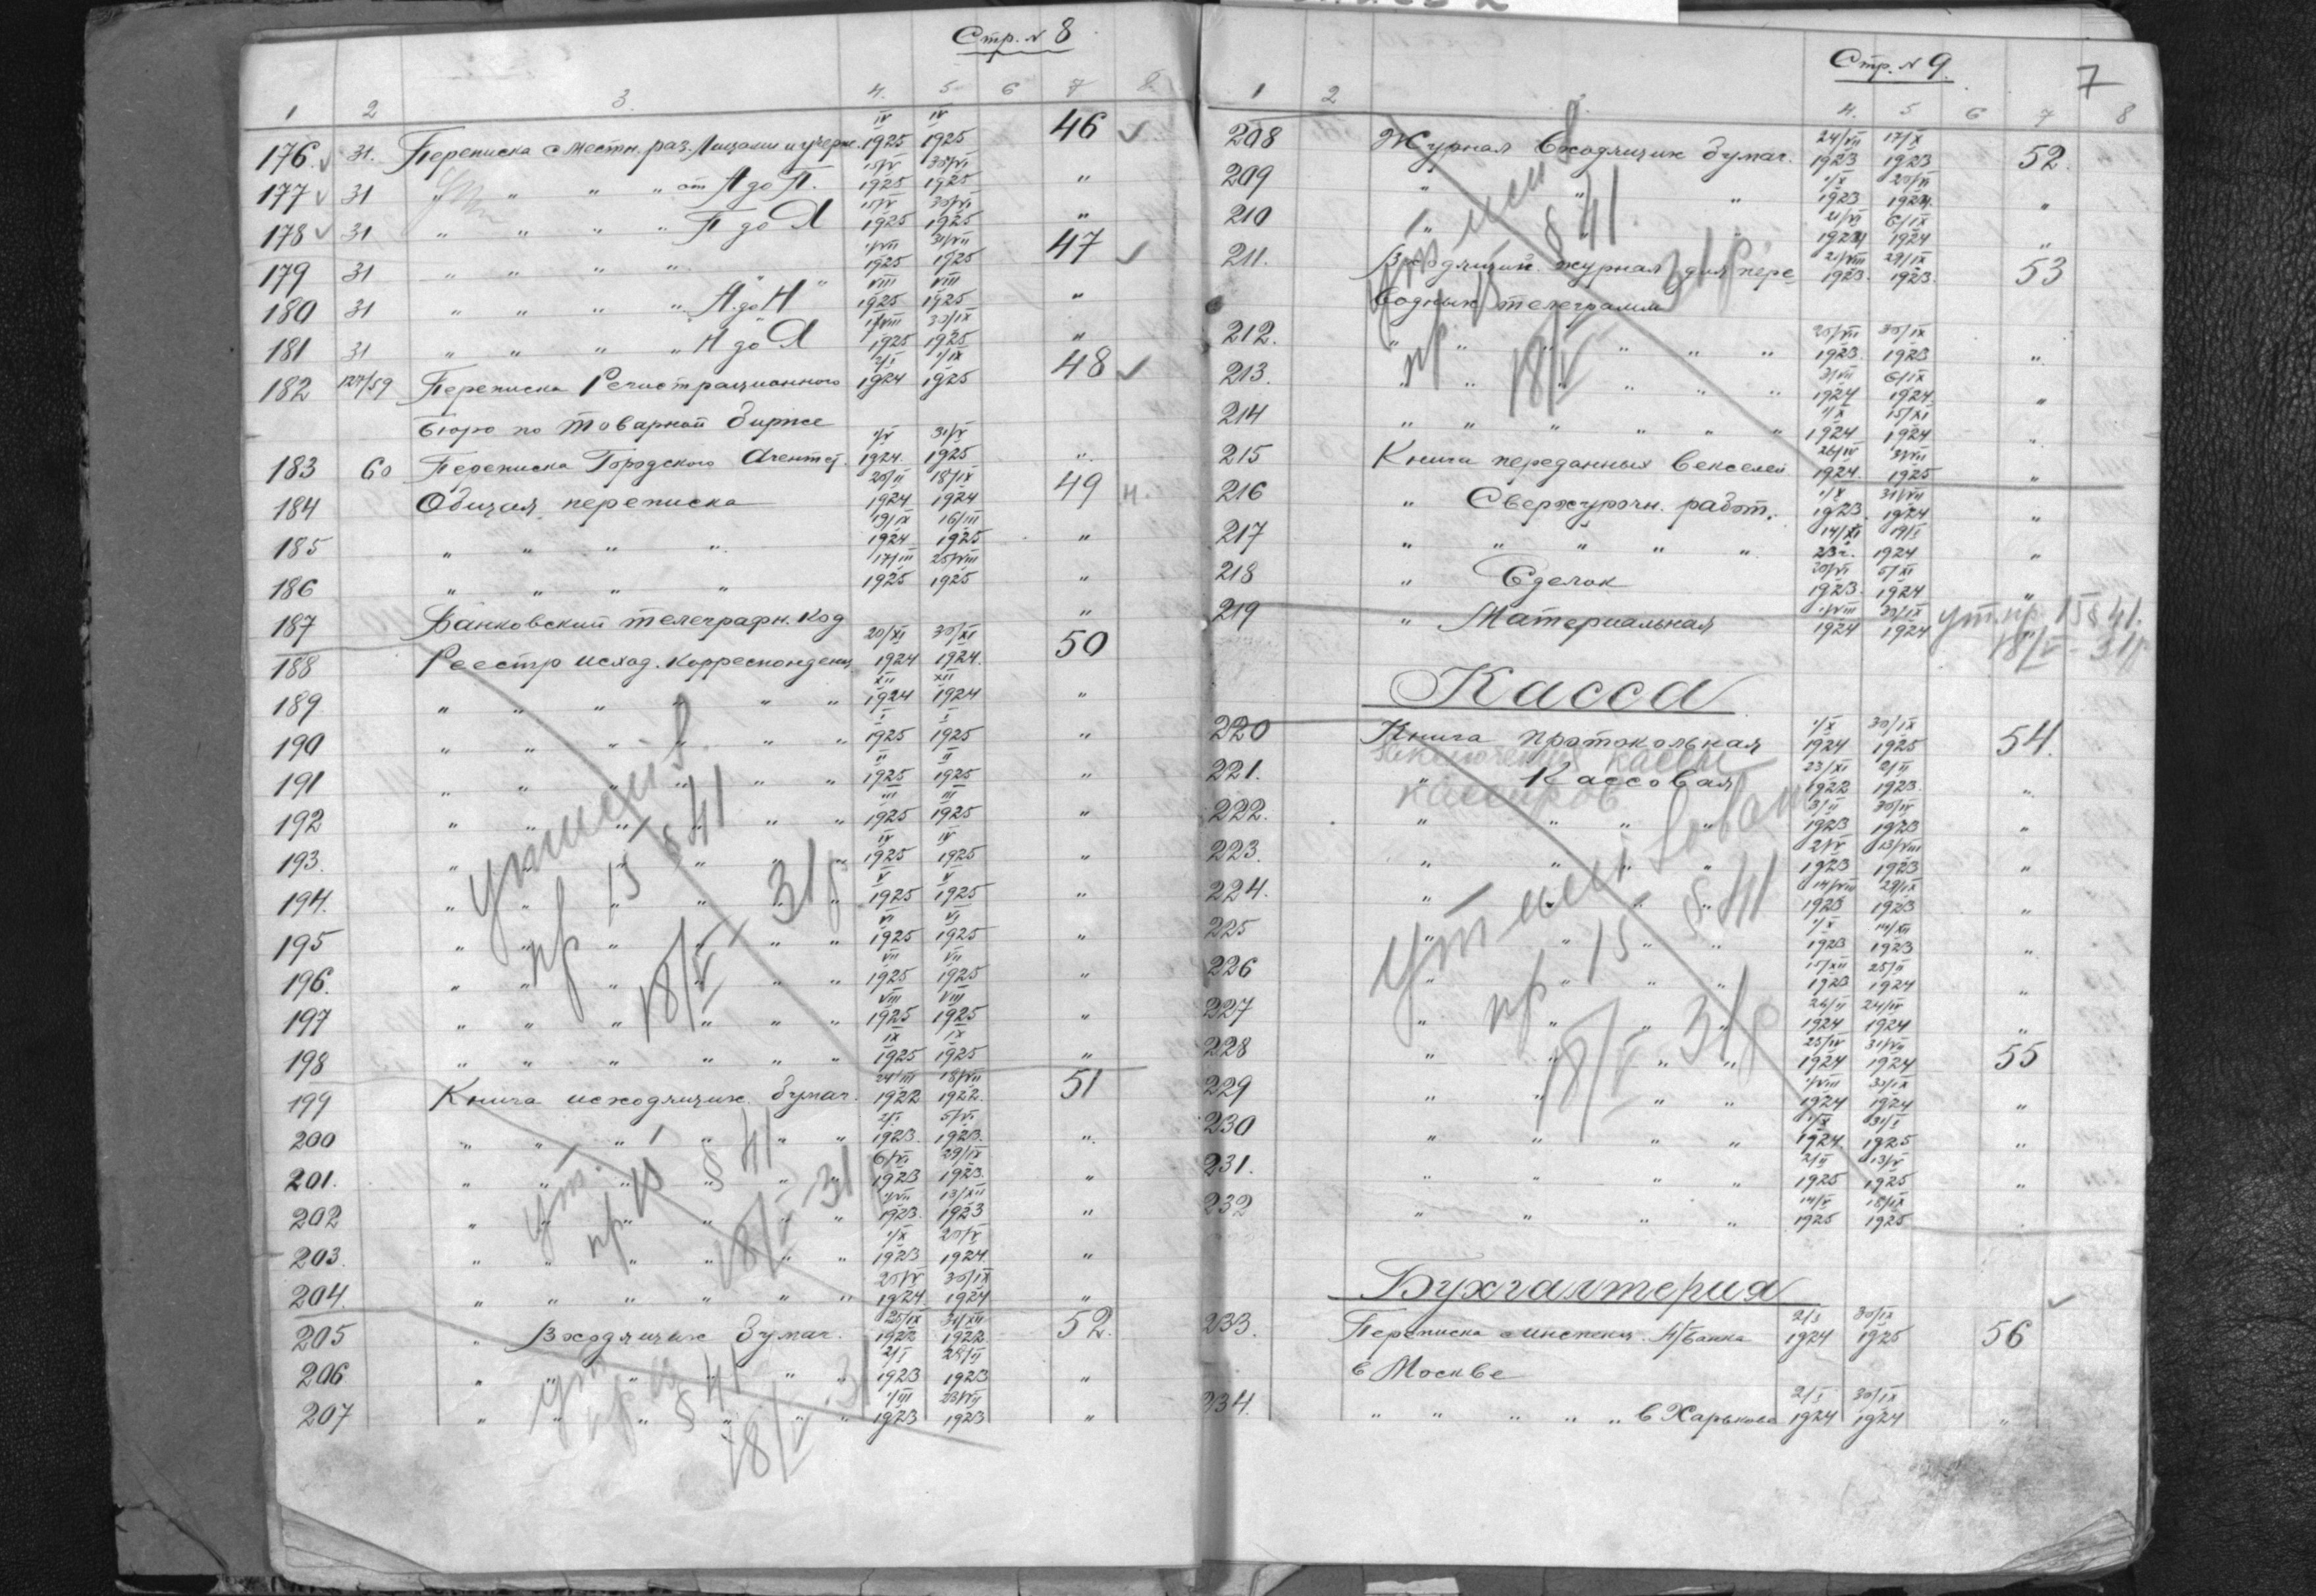 Стр. № 8
1 2 3. 4. 5 6 7 8.
176. 31. Переписка с местн. раз. лицами и учреж. IV 1925 IV 1925 46
177 31 " " " " от А до П. 15/V 1925 30/VI 1925 "
178 31 " " " " П до Я 15/V 1925 30/VI 1925 "
179 31 " " " " 1/VII 1925 31/VII 1925 47
180 31 " " " " А до Н VIII 1925 VIII 1925 "
181 31 " " " " Н до Я 1925 30/IX 1925 "
182 127/59 Переписка Регистрационного 2/I 1924 1/IX 1925 48
Бюро по товарной бирже
183 60 Переписка Городского Агентст. 1/V 1924. 31/V 1925 "
184 Общая переписка 20/II 1924 18/IX 1924 49 н.
185 " " " " 19/IX 1924 16/III 1925 "
186 " " " " 17/III 1925 25/VIII 1925 "
187 Банковский телеграфн. код "
188 Реестр исход. корреспонденц. 20/XI 1924 30/XI 1924. 50
189 " " " " " " XII 1924 XII 1924 "
190 " " " " " " I 1925 I 1925 "
191 " " " " " " II 1925 II 1925 "
192 " " " " " " III 1925 III 1925 "
193. " " " " " " IV 1925 IV 1925 "
194. " " " " " " V 1925 V 1925 "
195 " " " " " " VI 1925 VI 1925 "
196. " " " " " " VII 1925 VII 1925 "
197 " " " " " " VIII 1925 VIII 1925 "
198 " " " " " " IX 1925 IX 1925 "
пр 15 § 41
18/V 31 г
199 Книга исходящих бумаг. 24/III 1922 18/VII 1922. 51
200 " " " " " " 2/I 1923. 5/VI 1923. "
201. " " " " " " 6/VI 1923 29/IX 1923. "
202 " " " " " " 1923. 13/XII 1923 "
203. " " " " " " 1/X 1923 20/V 1924. "
204. " " " " " " 20/V 1924. 30/IX 1924 "
ут. пр 15 § 41
18/V-31
205 " Входящих бумаг. 25/IX 1922 31/XII 1922 52.
206 " " " " " " 2/I 1923 28/II 1923 "
207 " " " " " " 1/III 1923 23/VII 1923 "
ут пр 15 § 41
18/V 31
Стр. № 9.
7
1 2 4. 5 6 7 8
208 Журнал входящих бумаг. 24/VII 1923 17/X 1923 52.
209 " " " 1/X 1923 20/VI 1924. "
210 " " " 21/VI 1924 6/IX 1924 "
211. Входящий журнал для пере- 21/VIII 1923. 29/IX 1923. 53
водных телеграмм
212. " " " " " " 1923. 30/IX 1923 "
213. " " " " " " 1924 6/IX 1924. "
214 " " " " " " 1/X 1924 15/XI 1924 "
215 Книга переданных векселей 26/IV 1924. 1925 "
пр 15 § 41
18/V 31 г
216 " Сверхурочн. работ. 1/X 1923. 31/VII 1924 "
217 " " " " " 14/XI 23 г. 19/I 1924 "
218 " Сделок 20/VI 1923. 5/XI 1924 "
219 " Материальная 1/VIII 1924 30/IX 1924 ут. пр. 15 § 41.
18/V-31 г
Касса
220 Книга протокольная 1/X 1924 30/IX 1925 54.
221. " Кассовая 23/XI 1922 2/II 1923. "
кассиров
222. " " " " 3/II 1923 30/IV 1923 "
223. " " " " 2/V 1923 13/VIII 1923 "
224. " " " " 14/VIII 1923 29/IX 1923 "
225 " " " " 1/X 1923 14/XII 1923 "
226 " " " " 15/XII 1923 25/II 1924 "
227 " " " " 26/II 1924 24/IV 1924 "
228 " " " " 25/IV 1924 31/VII 1924 55
229 " " " " 1/VIII 1924 30/IX 1924 "
230 " " " " 1/X 1924 31/I 1925 "
231. " " " " 2/II 1925 13/V 1925 "
232 " " " " 14/V 1925 18/IX 1925 "
пр 15 § 41
18/V 31 г
Бухгалтерия
233. Переписка с инспекц. Г/банка 2/I 1924 30/IX 1925 56
в Москве
234. " " " " " в Харькове 2/I 1924 30/IX 1924 "